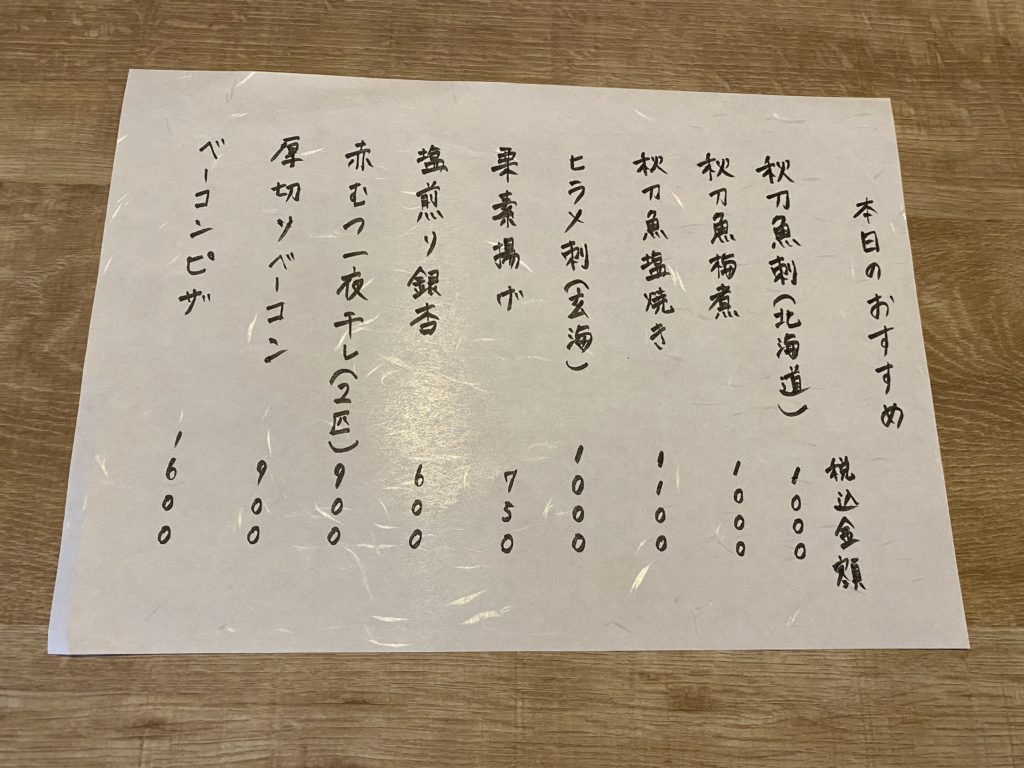 本日のおすすめ
税込金額
秋刀魚刺(北海道) 1000
秋刀魚梅煮 1000
秋刀魚塩焼き 1100
ヒラメ刺(玄海) 1000
栗素揚げ 750
塩煎り銀杏 600
赤むつ一夜干し(2匹) 900
厚切りベーコン 900
ベーコンピザ 1600